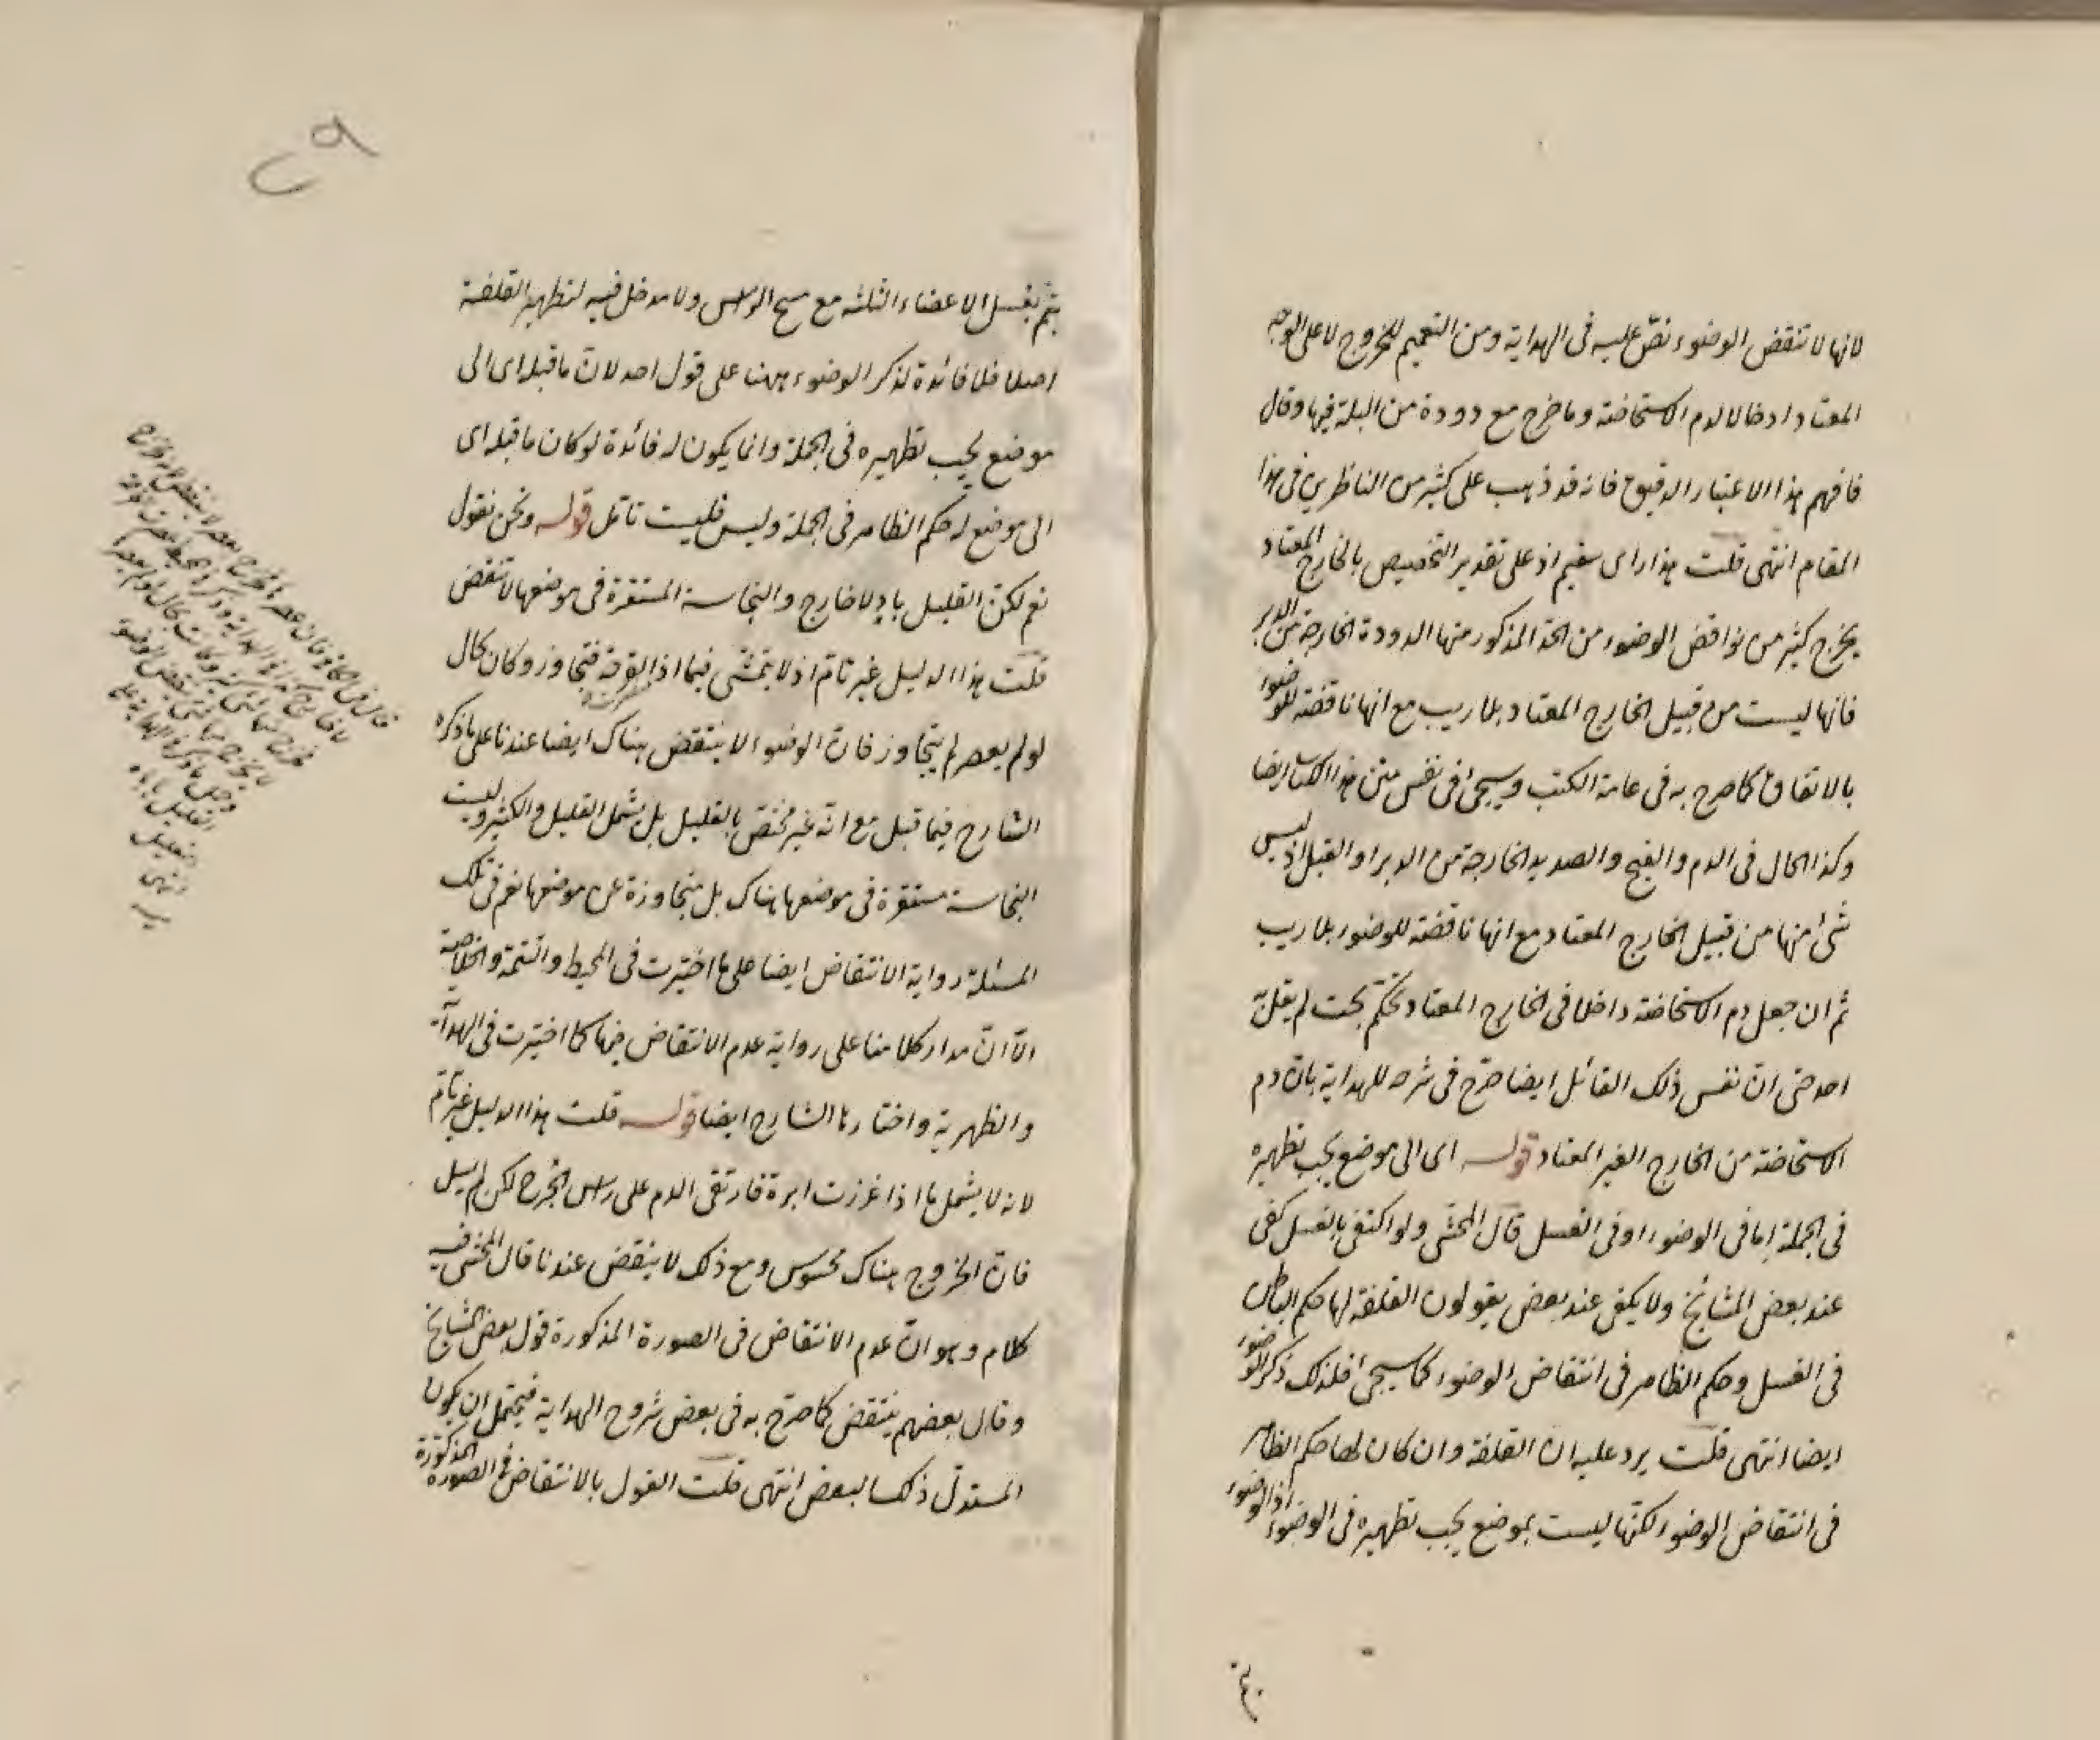 لانها لا تنقض الوضوء نصّ عليه فى الهداية ومن التعميم للخروج لا على الوجه
المعتاد ادخالا لدم الاستحاضة وما خرج مع دودة من البلة فيها وقال
فافهم هذا الاعتبار الدقيق فانه قد ذهب على كثير من الناظرين فى هذا
المقام انتهى قلت هذا راى سقيم اذ على تقدير التخصيص بالخارج المعتاد
يخرج كثير من نواقض الوضوء من الحدّ المذكور منها الدودة الخارجة من الدبر
فانها ليست من قبيل الخارج المعتاد بلا ريب مع انها ناقضة للوضوء
بالاتفاق كما صرح به فى عامة الكتب وسيجئ فى نفس متن هذا الكتاب ايضا
وكذا الحال فى الدم والقيح والصديد الخارجة من الدبر او القبل اذ ليس
شئ منها من قبيل الخارج المعتاد مع انها ناقضة للوضوء بلا ريب
ثم ان جعل دم الاستحاضة داخلا فى الخارج المعتاد تحكّم بحت لم يقل به
احد حتى انّ نفس ذلك القائل ايضا صرّح فى شرحه للهداية بانّ دم
الاستحاضة من الخارج الغير المعتاد قوله اى الى موضع يجب تطهيره
فى الجملة اما فى الوضوء او فى الغسل قال المحشى ولو اكتفى بالغسل كفى
عند بعض المشائخ ولا يكفى عند بعض يقولون القلفة لها حكم الباطن
فى الغسل وحكم الظاهر فى انتقاض الوضوء كما سيجئ فلذلك ذكر الوضوء
ايضا انتهى قلت يرد عليه ان القلفة وان كان لها حكم الظاهر
فى انتقاض الوضوء لكنّها ليست بموضع يجب تطهيره فى الوضوء اذ الوضوء
يتم بغسل الاعضاء الثلثه مع مسح الراس ولا مدخل فيه لتطهير القلفة
اصلا فلا فائدة لذكر الوضوء ههنا على قول احد لانّ ما قبله اى الى
موضع يجب تطهيره فى الجملة وانما يكون له فائدة لو كان ما قبله اى
الى موضع له حكم الظاهر فى الجملة وليس فليست تأمّل قوله ونحن نقول
نعم لكنّ القليل بادٍ لا خارج والنجاسة المستقرة فى موضعها لا تنقض
قلت هذا الدليل غير تامّ اذ لا يتمشّى فيما اذا القرحة فتجاوز وكان بحال
لو لم يعصر لم يتجاوز فانّ الوضوء لا ينتقض هناك ايضا عندنا على ما ذكره
الشارح فيما قبل مع انّه غير مختصّ بالقليل بل يشمل القليل والكثير وليست
النجاسة مستقرة فى موضعها هناك بل متجاوزة عن موضعها نعم فى تلك
المسئلة رواية الانتقاض ايضا على ما اختيرت فى المحيط والتتمّة والخلاصة
الّا انّ مدار كلامنا على رواية عدم الانتقاض فيها كما اختيرت فى الهداية
والظهرية واختارها الشارح ايضا قوله قلت هذا الدليل غير تامّ
لانه لا يشمل ما اذا غرزت ابرة فارتقى الدم على راس الجرح لكن لم يسل
فانّ الخروج هناك محسوس ومع ذلك لا ينقض عندنا قال المحشى فيه
كلام وهو انّ عدم الانتقاض فى الصورة المذكورة قول بعض المشايخ
وقال بعضهم ينتقض كما صرّح به فى بعض شروح الهداية فيحتمل ان يكون
المستدلّ ذلك البعض انتهى قلت القول بالانتقاض فى الصورة المذكورة